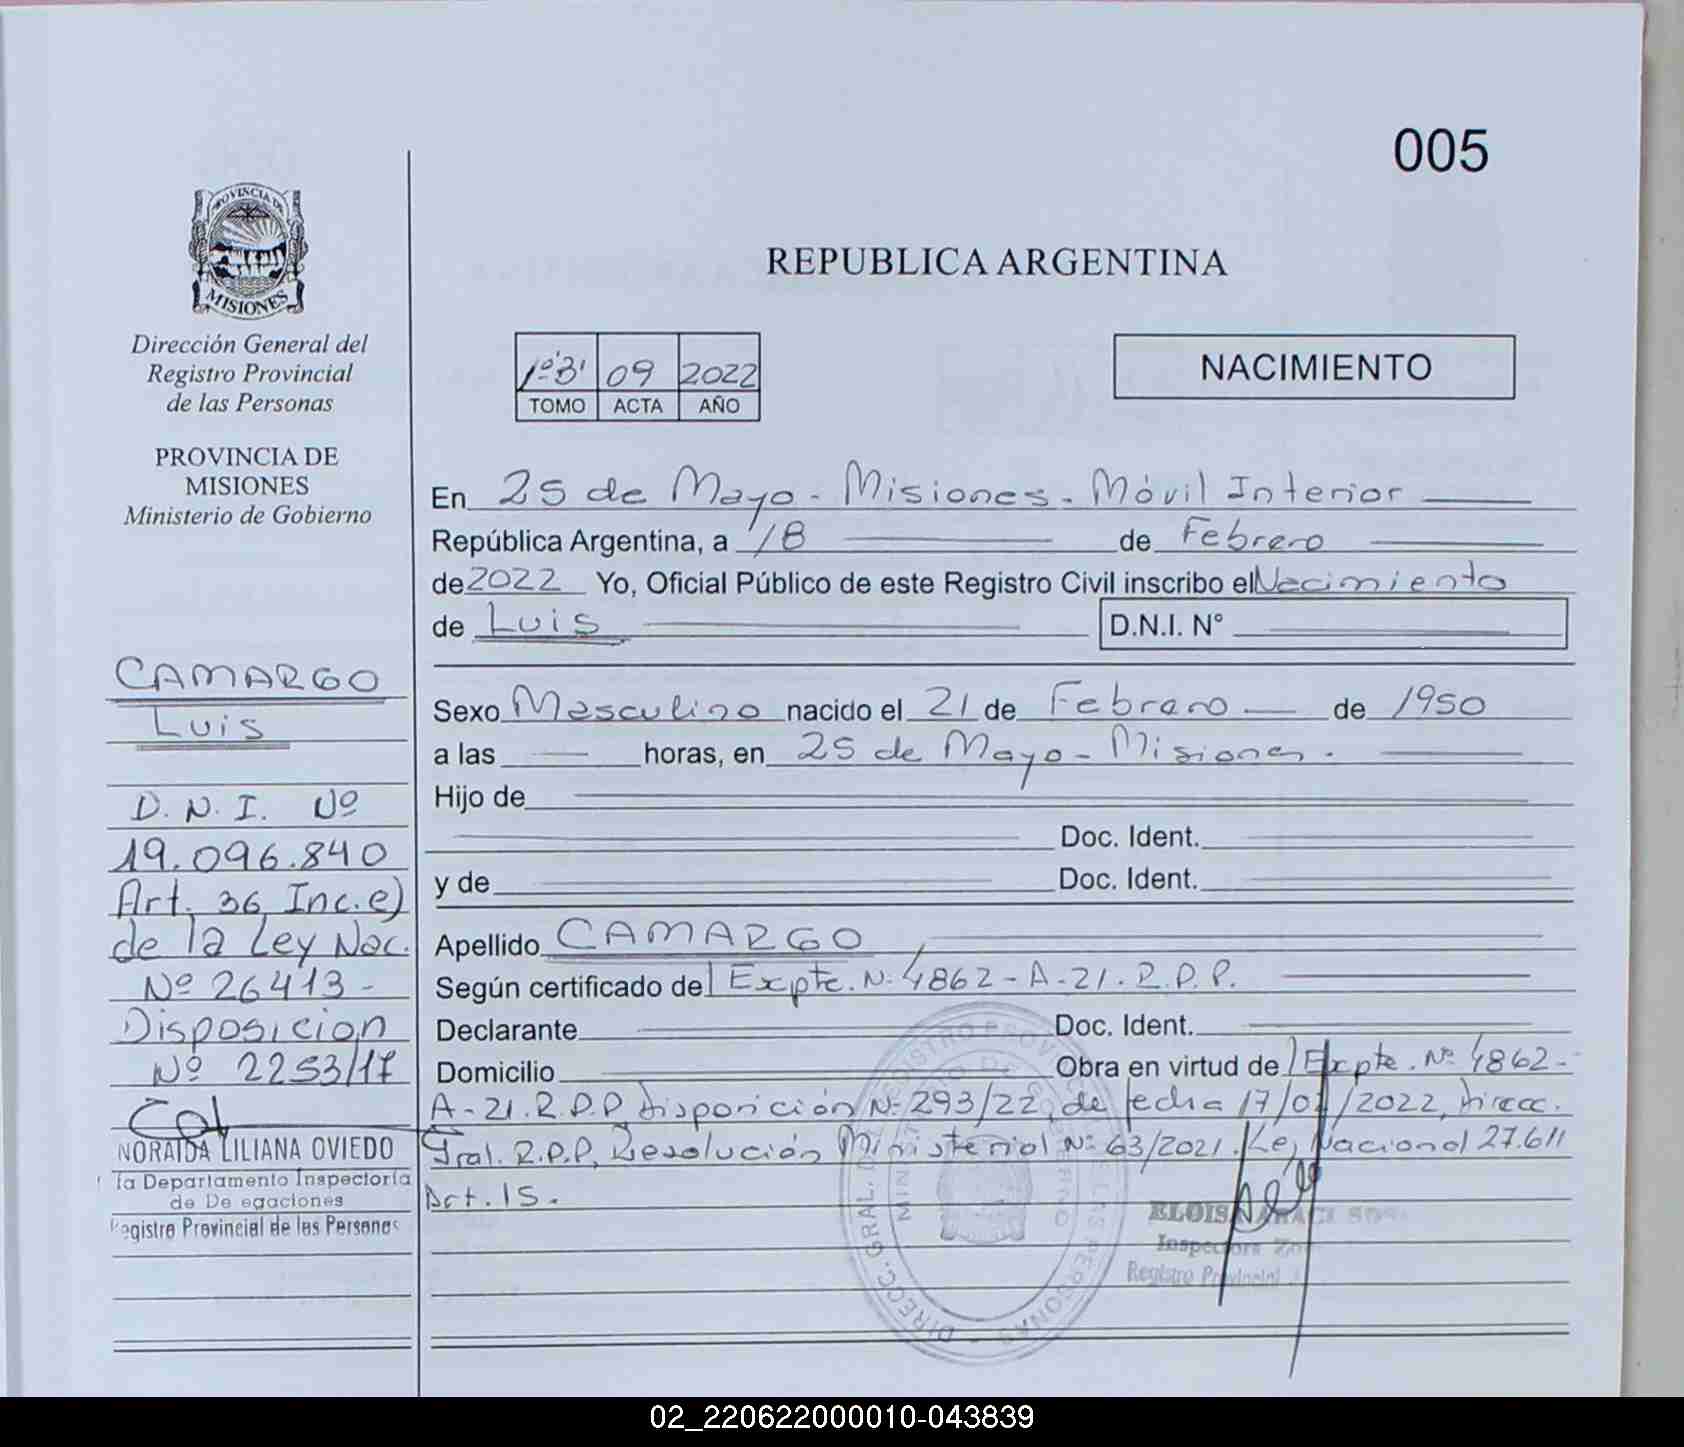 005
PROVINCIA DE
MISIONES
Dirección General del
Registro Provincial
de las Personas
PROVINCIA DE
MISIONES
Ministerio de Gobierno
CAMARGO
Luis
D.N.I. Nº
19.096.840
Art. 36 Inc.e)
de la Ley Nac.
Nº 26413-
Disposicion
Nº 2253/17
NORAIDA LILIANA OVIEDO
fa Departamento Inspectoría
de De egaciones
Registro Provincial de las Personas
REPUBLICA ARGENTINA
1º"B" 09 2022
TOMO ACTA AÑO
NACIMIENTO
En 25 de Mayo - Misiones - Móvil Interior
República Argentina, a 18 de Febrero
de 2022 Yo, Oficial Público de este Registro Civil inscribo el Nacimiento
de Luis D.N.I. N°
Sexo Masculino nacido el 21 de Febrero de 1950
a las horas, en 25 de Mayo - Misiones.
Hijo de
Doc. Ident.
y de Doc. Ident.
Apellido CAMARGO
Según certificado del Expte. N: 4862-A-21.R.P.P.
Declarante Doc. Ident.
Domicilio Obra en virtud de Expte. Nº 4862-
A-21.R.P.P, Disposición Nº 293/22, de fecha 17/02/2022, Direcc.
Gral. R.P.P, Resolución Ministerial Nº 63/2021. Ley Nacional 27.611
Art. 15.
DIRECC. GRAL. DEL REGISTRO PROVINCIAL DE LAS PERSONAS
MINISTERIO DE GOBIERNO
Inspectora
Registro Provincial
02_220622000010-043839